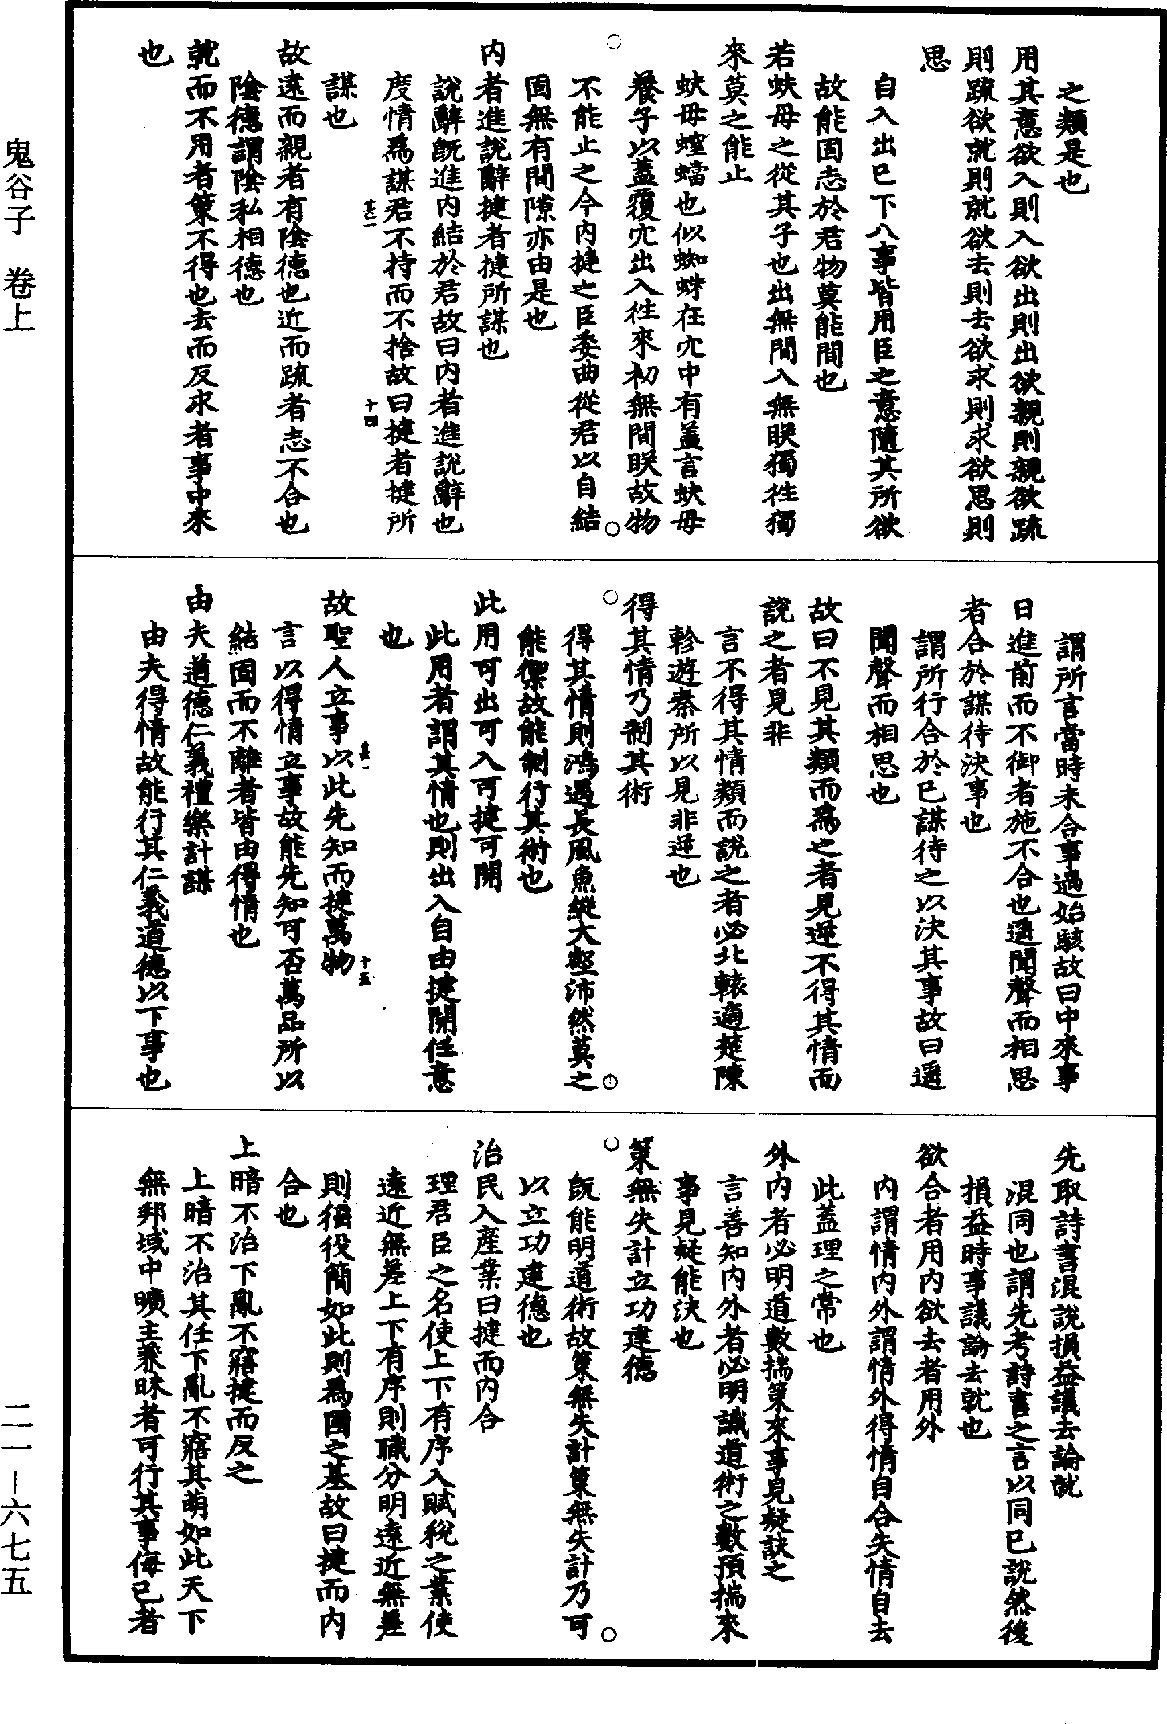 之類是也
用其意欲入則入欲出則出欲親則親欲疏
則疏欲就則就欲去則去欲求則求欲思則
思
自入出已下八事皆用臣之意隨其所欲
故能固志於君物莫能間也
若蚨母之從其子也出無間入無朕獨往獨
來莫之能止
蚨母螲蟷也似蜘蛛在穴中有蓋言蚨母
養子以蓋覆穴出入往來初無間朕故物
不能止之今內揵之臣委曲從君以自結
固無有間隙亦由是也
內者進說辭揵者揵所謀也
說辭既進內結於君故曰內者進說辭也
度情為謀君不持而不捨故曰揵者揵所
謀也
故遠而親者有陰德也近而疏者志不合也
陰德謂陰私相德也
就而不用者策不得也去而反求者事中來
也
謂所言當時未合事過始駭故曰中來事
日進前而不御者施不合也遥聞聲而相思
者合於謀待決事也
謂所行合於已謀待之以決其事故曰遥
聞聲而相思也
故曰不見其類而為之者見逆不得其情而
說之者見非
言不得其情類而說之者必北轅適楚陳
軫遊秦所以見非逆也
得其情乃制其術
得其情則鴻遇長風魚縱大壑沛然莫之
能禦故能制行其術也
此用可出可入可揵可開
此用者謂其情也則出入自由揵開任意
也
故聖人立事以此先知而揵萬物
言以得情立事故能先知可否萬品所以
結固而不離者皆由得情也
由夫道德仁義禮樂計謀
由夫得情故能行其仁義道德以下事也
先取詩書混說損益議去論就
混同也謂先考詩書之言以同已說然後
損益時事議論去就也
欲合者用內欲去者用外
內謂情內外謂情外得情自合失情自去
此蓋理之常也
外內者必明道數揣策來事見疑訣之
言善知內外者必明識道術之數預揣來
事見疑能決也
策無失計立功建德
既能明道術故策無失計策無失計乃可
以立功建德也
治民入產業曰揵而內合
理君臣之名使上下有序入賦稅之業使
遠近無差上下有序則職分明遠近無差
則徭役簡如此則為國之基故曰揵而內
合也
上暗不治下亂不寤揵而反之
上暗不治其任下亂不寤其萌如此天下
無邦域中曠主兼昧者可行其事侮已者
鬼谷子 卷上
二一-六七五